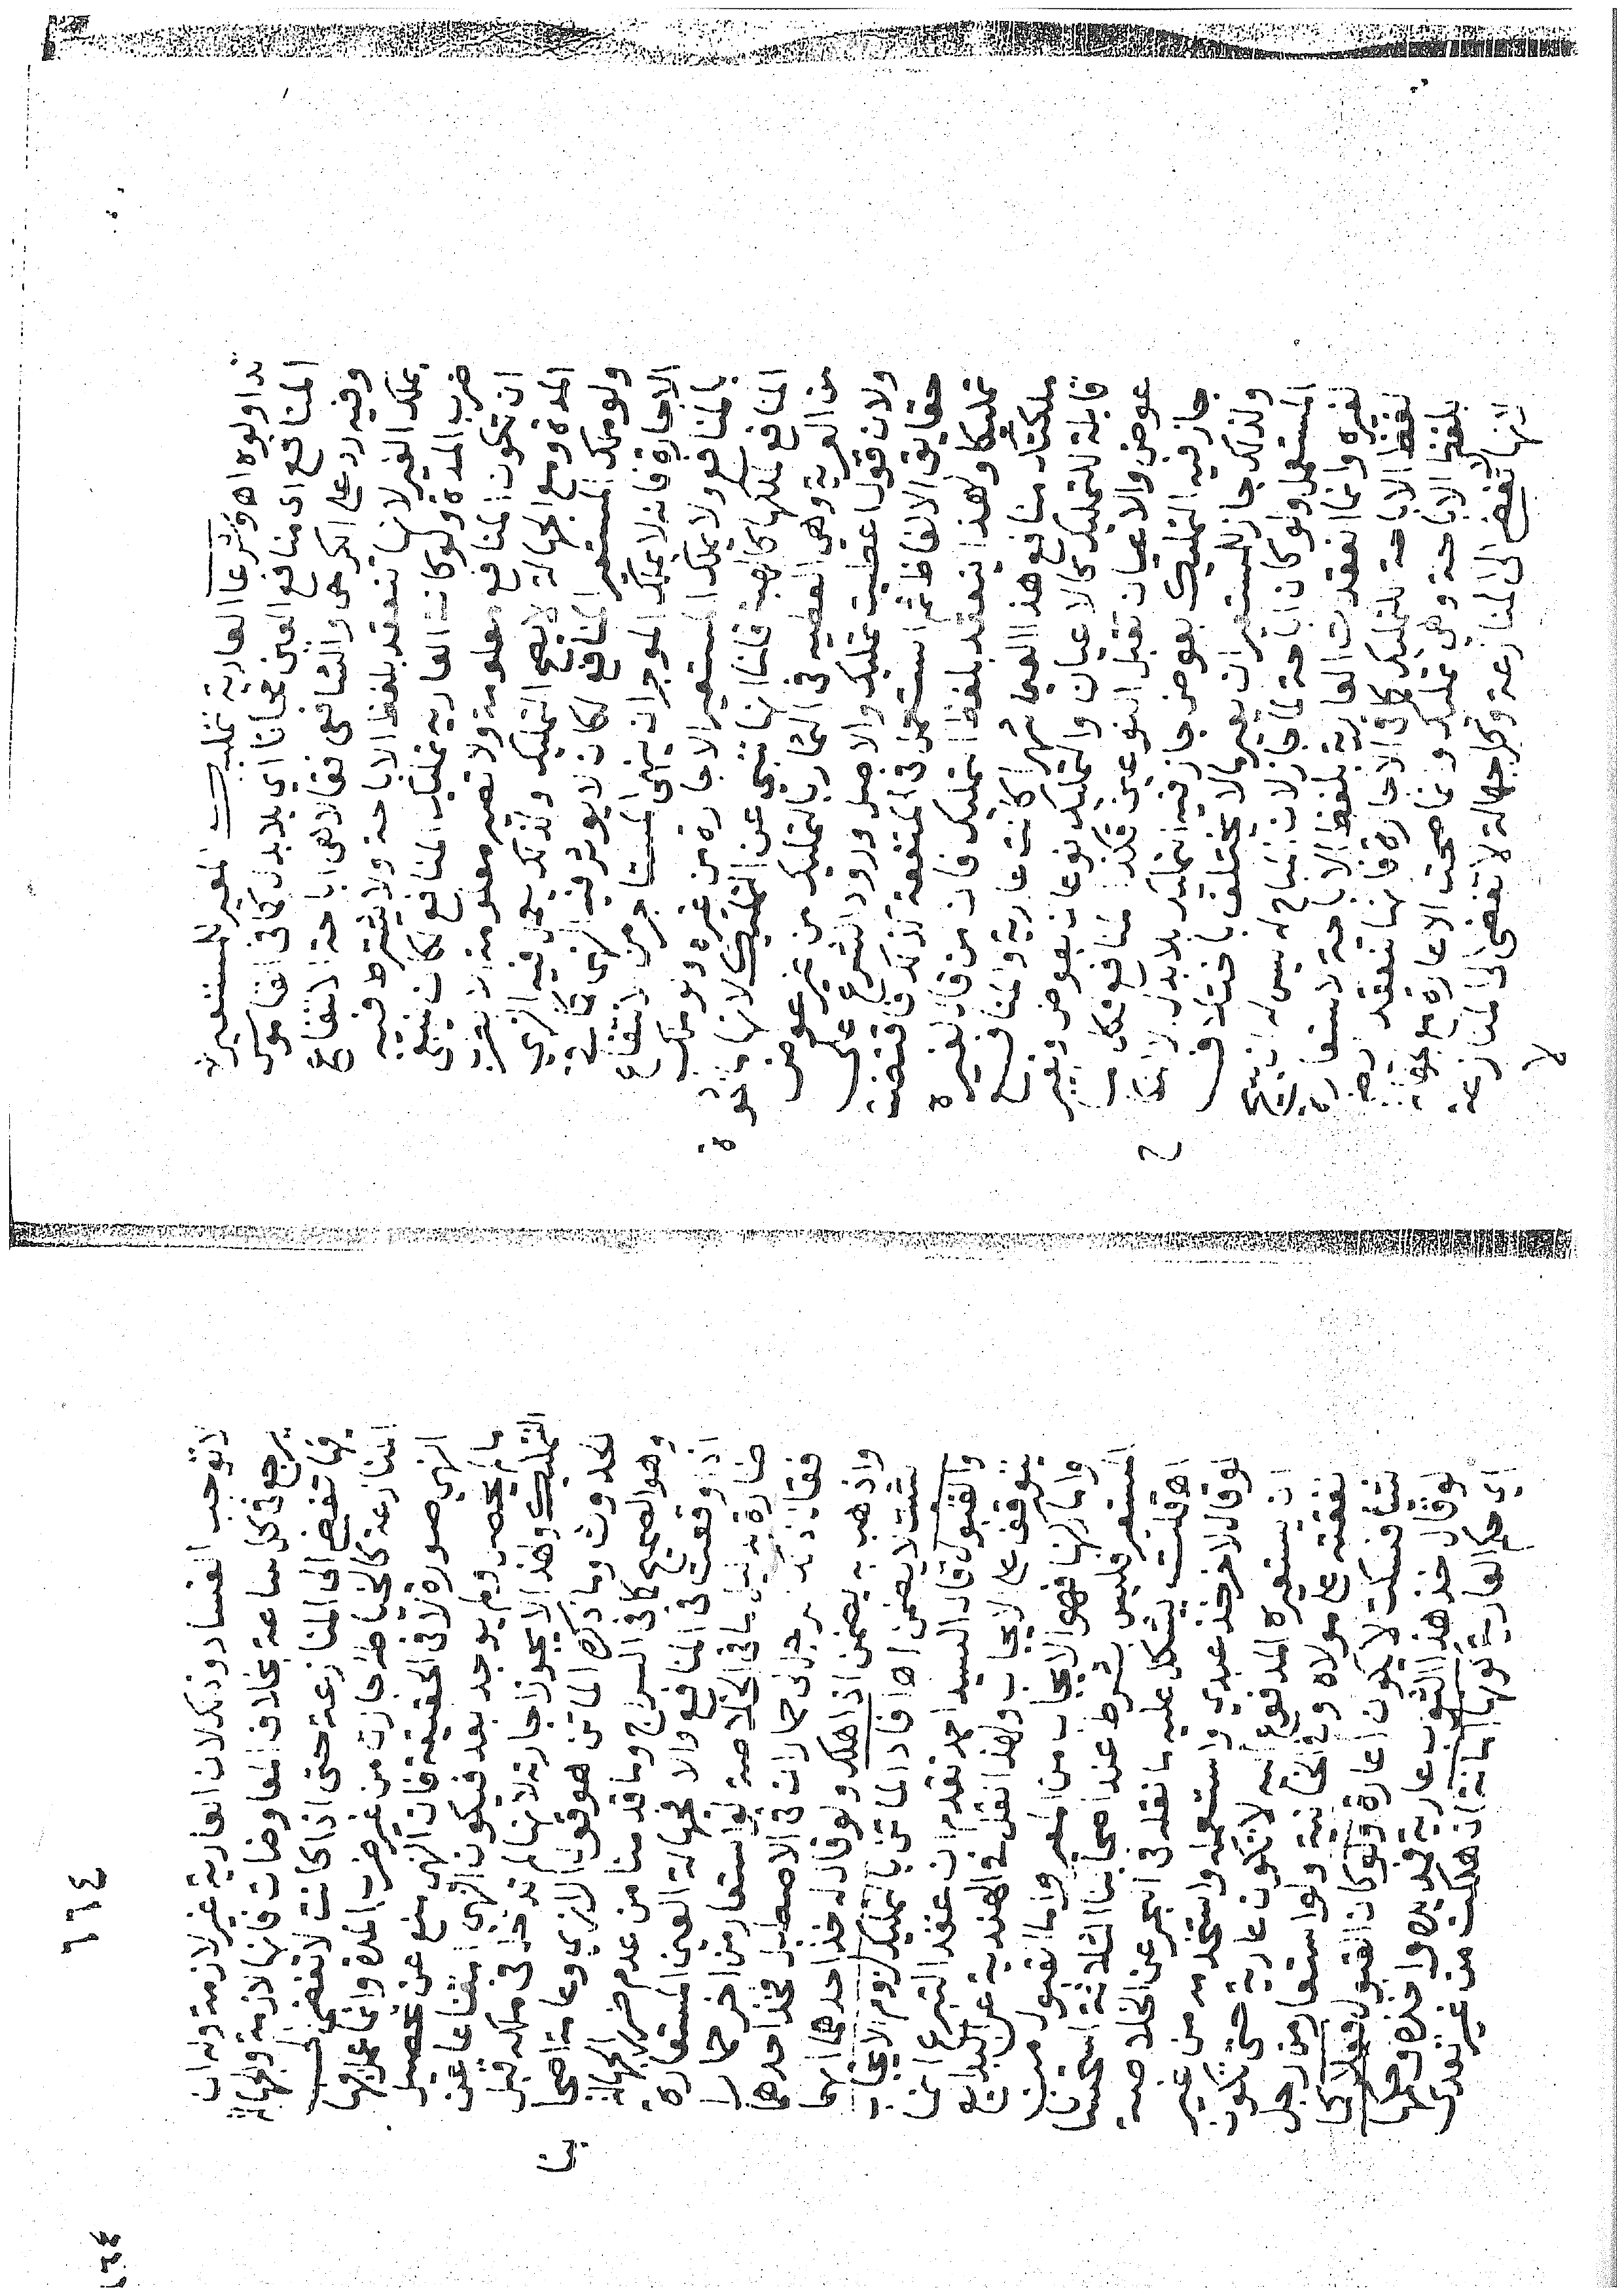 تداولوه اهـ وشرعا العارية تمليك المعير للمستعير
المنافع اى منافع العين مجانا اي بلا بدل كما فى القاموس
وفيه رد على الكرخى والشافعى فقالا هى اباحة انتفاع
بملك الغير لانها تنعقد بلفظ الاباحة ولا يشترط فيه
ضرب المدة ولو كانت العارية تمليك المنافع لكان ينبغى
ان تكون المنافع معلومة ولا تصير معلومة الا بضرب
المدة ومع الجهالة لا يصح التمليك ولذلك يعمل فيه النهي
ولو ملك المستعير المنافع لكان لا يوثر فيه النهى كما فى
الاجارة فانه لا يملك الموجر ان ينهى المستاجر من الانتفاع
بالمنافع ولا يملك المستعير الاجارة من غيره ولو ملك
المنافع لملكها كالهبة فلنا انها تنبى عن التمليك لانها ماخوذة
من العرية وهى العطية فى الثمار بالتمليك من غير عوض
ولان قوله اعطيت تمليك والاصل ورود الشرع على
حقايق الالفاظ ثم استعمل فى المنفعة كذلك فاقتضت
تمليكا ولهذا ينعقد بلفظ التمليك فان من قال لغيره
ملكتك منافع هذا العين شهرا كانت عارية والمنافع
قابلة للتمليك كالاعيان والتمليك نوعان بعوض وبغير
عوض والاعيان تقبل النوعين فكذا المنافع وكل ما
جاز فيه التمليك بعوض جاز فيه التمليك بلا بدل الا النكاح
ولذلك جاز للمستعير ان يعير ما لا يختلف باختلاف
المستعمل ولو كان اباحة لما جاز لان المباح له ليس له ان يبيح
لغيره وانما انعقدت العارية بلفظ الاباحة لاستعارة
لفظ الاباحة للتمليك كما فى الاجارة فانها تنعقد
بلفظ الاباحة وهى تمليك وانما صحت الاعارة مع جهالة
لانها لا تفضى الى المنازعة وكل جهالة لا تفضى الى المنازعة
لا
٦٦٤
لا توجب الفساد وذلك لان العارية غير لازمة وله ان
يرجع فى كل ساعة بخلاف المعاوضات فانها لازمة والجهالة
فيها تفضى الى المنازعة حتى اذا كانت لا تفضى الى
المنازعة كالخياطة جازت من غير ضرب المدة وانما عمل فيها
النهى صورة لا فى الحقيقة فان النهى منع عن تحصيل
ما لم يحصل ولم يوجد بعد فيكون النهى امتناعا عن
التمليك وهذا لا يجوز اجارته لانها لم تدخل فى ملكه قبل
الحدوث وما ذكره الماتن هو قول الرازي وعامة اصحابنا
وهو الصحيح كما فى السراج وما قدمنا من عدم ضرر الجهالة
اذا وقعت فى المنافع والا فجهالة العين المستعارة
ضارة بدليل ما فى الخلاصة لو استعار من اخر حمارا
فقال ذلك الرجل لى حماران فى الاصطبل فخذ احدهما
واذهب به يضمن اذا هلك ولو قال له خذ احدهما ايهما
شئت لا يضمن اهـ افاد الماتن بالتمليك لزوم الايجاب
والقبول قال السيد احمد نقدم ان عقد التبرع انما
يتوقف على الايجاب ولهذا نقل فى الهندية عن البدايع
واما ركنها فهو الايجاب من المعير واما القبول من
المستعير فليس بشرط عند اصحابنا الثلاثة استحسانا
اهـ قلت يشكل عليه ما نقله فى البحر عن الخلاصة
لو قال لاخر خذ عبدي واستعمله واستخدمه من غير
ان يستعيره المدفوع اليه لا تكون عارية حتى تكون
نفقته على مولاه وفى الخانية ولو استعار من رجل
شيأ فسكت لا يكون اعارة ولو كان القبول فعلا كما
لو قال خذ هذا الثوب عارية فمد يده واخذه وحكمها
اي حكم العارية كونها امانة ان هلكت من غير تعدى
٦٦٤